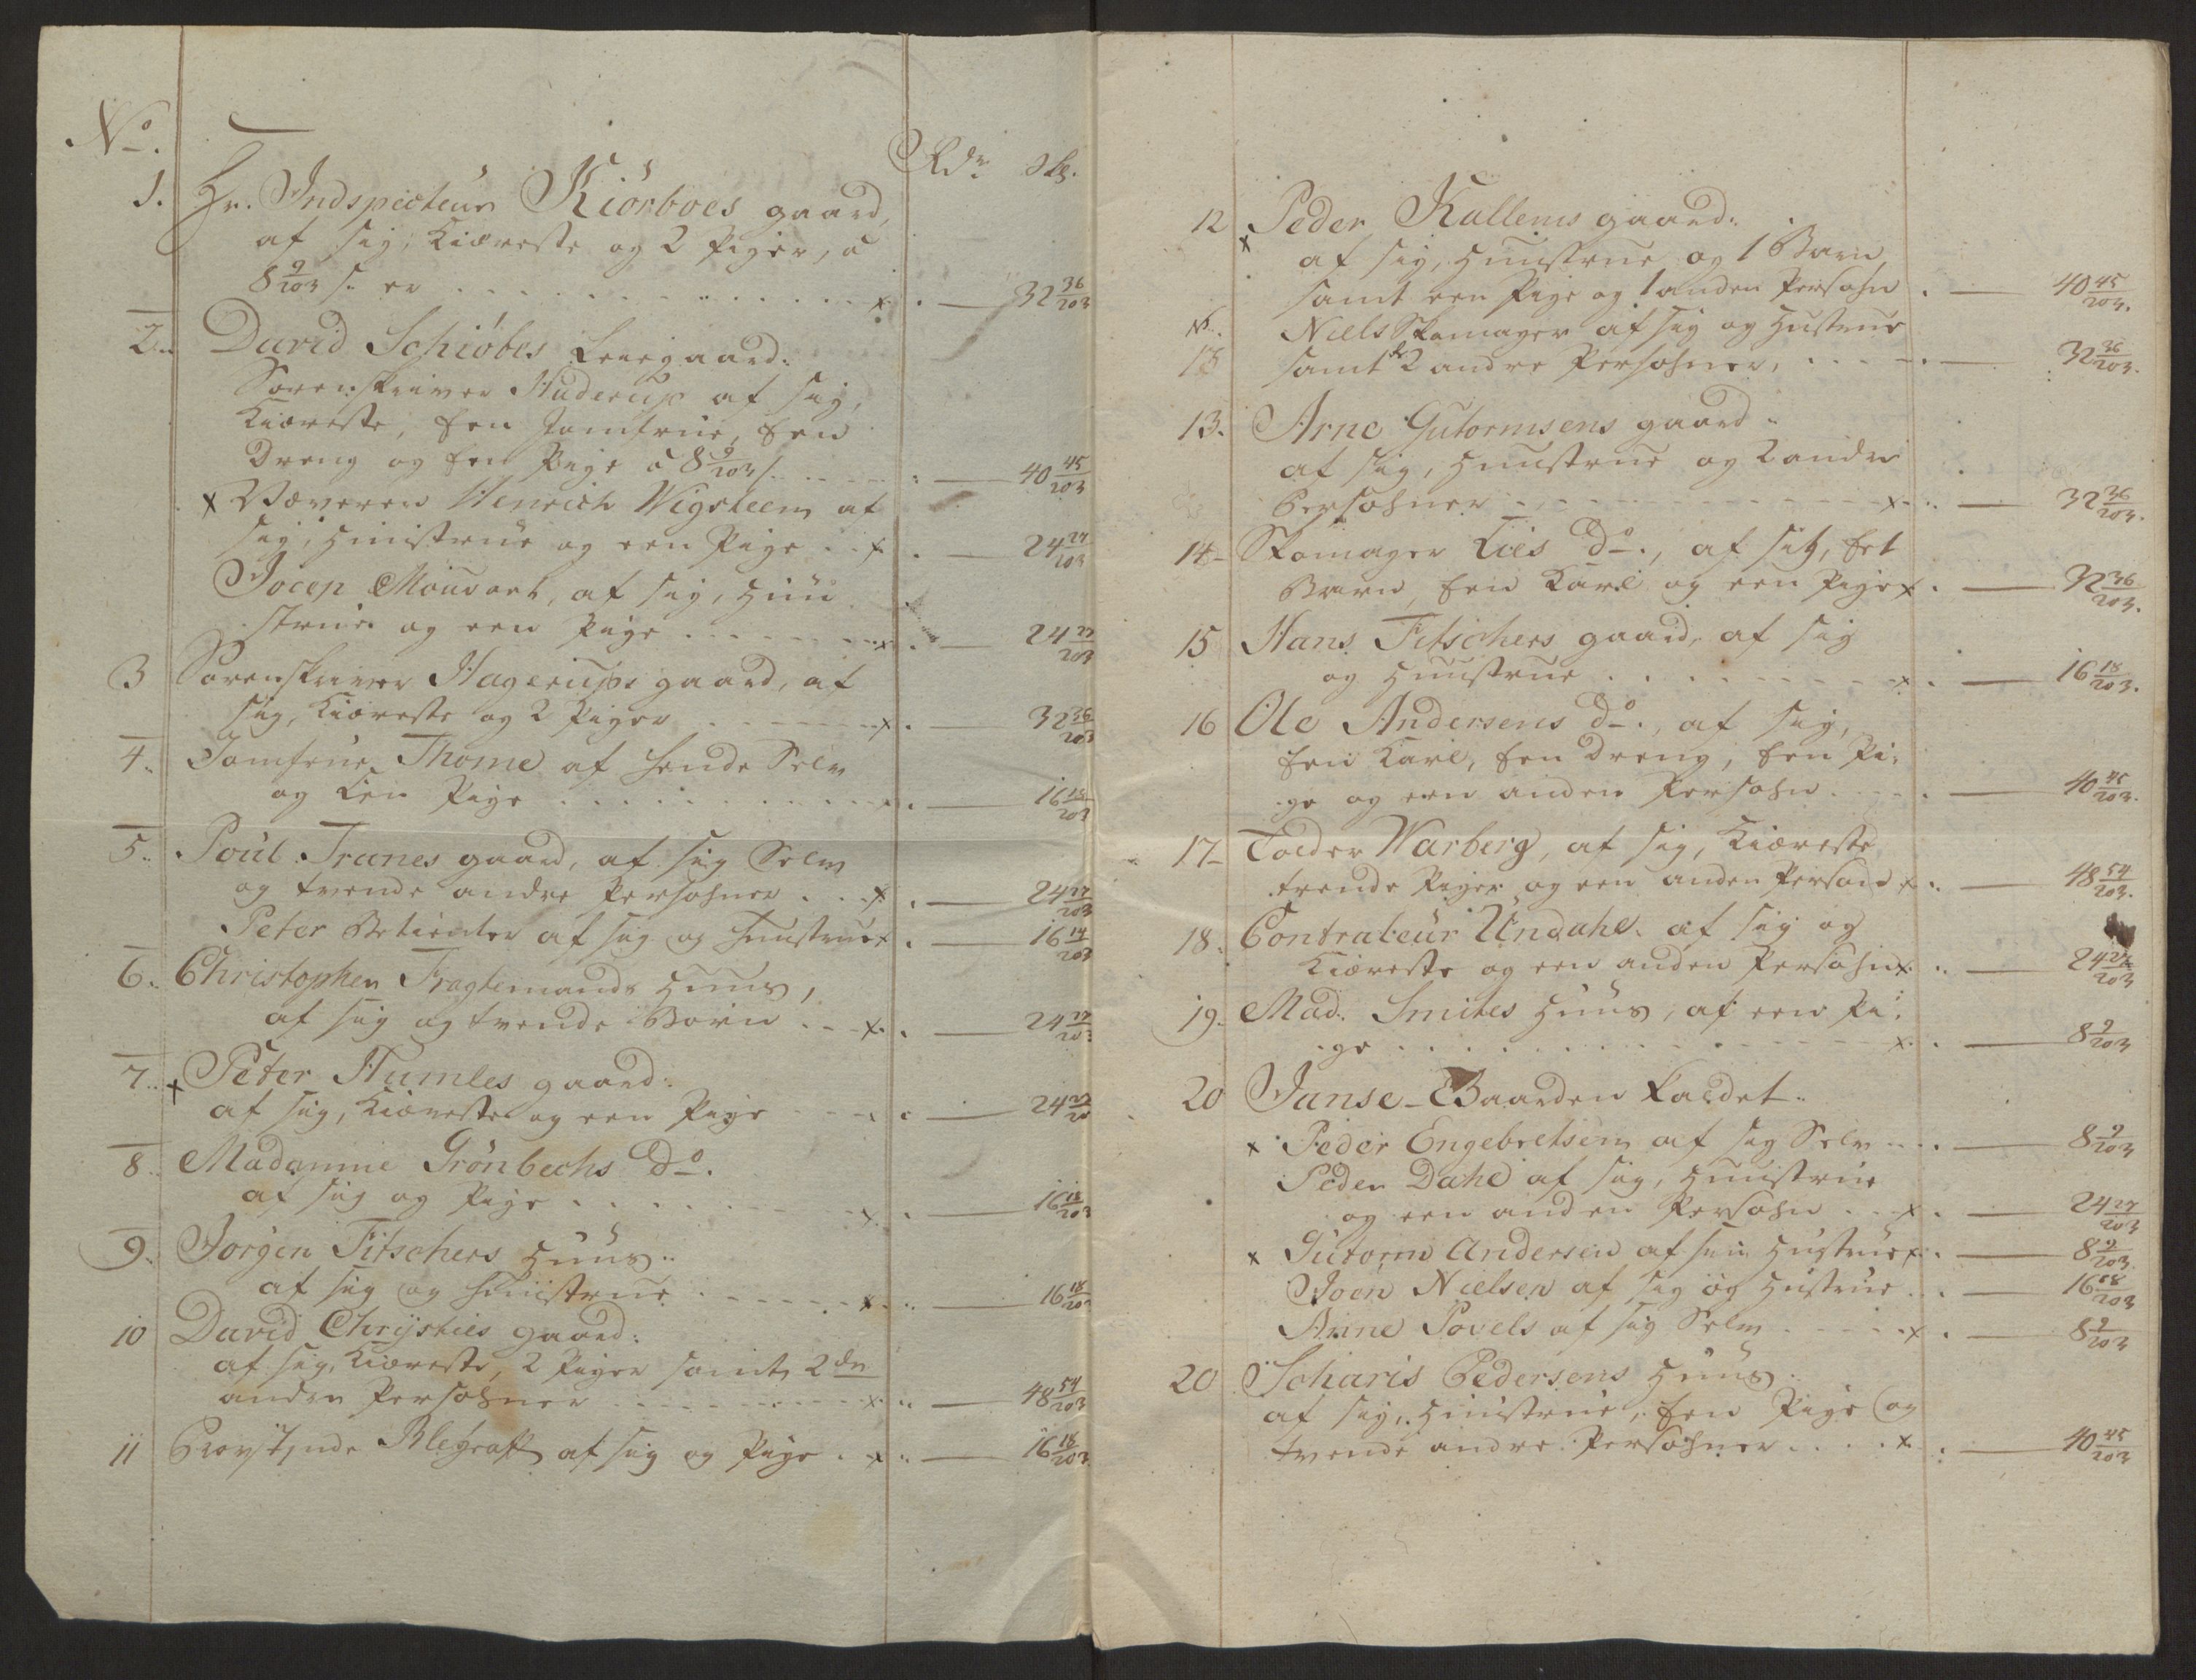 No.
Rdr. Sk.
1. Hr. Indspecteur Kiörboes gaard,
af sig, Kiæreste og 2 Piger, á
8 9/203 s. er . . . x . — 32 36/203
2. David Schiöbes Leiegaard:
Sorenskriver Huderup af sig,
Kiæreste, Een Jomfrue, Een
Dreng og Een Pige á 8 9/203 s. . . . — 40 45/203
x Væveren Henrich Wigsteen af
sig, Huustrue og een Pige . . x . — 24 27/203
Jocep Mouvart, af sig, Huu
strue og een Pige . . . x . — 24 27/203
3 Sorenskriver Hagerups gaard, af
sig, Kiæreste og 2 Piger . . . x . — 32 36/203
4. Jomfrue Thome af Hende Selv
og Een Pige . . . — 16 18/203
5. Poul Tranes gaard, af sig Selv
og tvende andre Persohner . . x . — 24 27/203
Peter Betienter af sig og Huustrue x . — 16 14/203
6. Christopher Fragtemands Huus,
af sig og tvende Børn . . x . — 24 27/203
7. x Peter Humles gaard:
af sig, Kiæreste og een Pige . . x . — 24 27/20
8. Madamme Grönbechs do.
af sig og Pige . . . x . — 16 18/203
9. Jorgen Fitschers Huus:
af sig og Huustrue . . . x . — 16 18/20
10 David Chrysties gaard:
af sig, Kiæreste, 2 Piger samt 2de
andre Persohner . . . x . — 48 54/203
11 Blehraft af sig og Pige . x . — 16 18/203
12 x Peder Kallems gaard:
af sig, Huustrue og 1 Barn
samt een Pige og 1 anden Persohn . — 40 45/203.
Niels Skomager af sig og Hustrue
13 samt 2 andre Persohner, . . . — 32 36/203.
13. Arne Gutormsens gaard:
af sig, Huustrue og 2 andre
Persohner . . . x . — 32 36/203.
14 Skomager Lies do., af sig, Et
Barn, Een Karl og een Pige x . — 32 36/203.
15 Hans Fitschers gaard, af sig
og Huustrue . . . x . — 16 18/203.
16 Ole Andersens do., af sig,
Een Karl, Een Dreng, Een Pi-
ge og een anden Persohn . . . — 40 45/203.
17 Tolder Warberg, af sig, Kiæreste
tvende Piger og een anden Persohn x . — 48 54/203.
18. Contraleur Undahl af sig og
Kiæreste og een anden Persohn x . — 24 27/203
19. Mad. Smites Huus, af een Pi-
ge . . . x . — 8 9/203
20 Janse-Gaarden kaldet:
x Peder Engebretsen af sig Selv . . . — 8 9/203
Peder Dahl af sig, Huustrue
og een anden Persohn . . x . — 24 27/203
x Gutorm Andersen af sin Hustrue x . — 8 9/203.
Joen Nielsen af sig og Hustrue . . — 16 18/203
Anne Povels af sig Selv . . . x . — 8 9/203
20 Zcharis Pedersens Huus:
af sig, Huustrue, Een Pige og
tvende andre Persohner . . . x . — 40 45/203